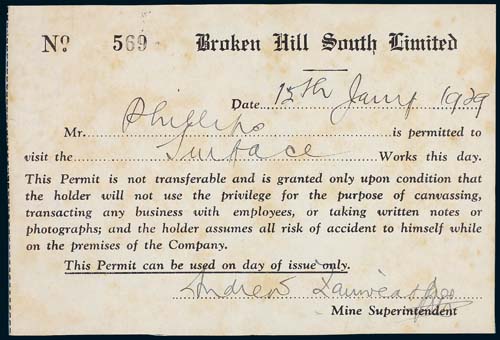 No 569 Broken Hill South Limited
Date 15th Jany 1929
Mr. Phillips is permitted to
visit the Surface Works this day.
This Permit is not transferable and is granted only upon condition that
the holder will not use the privilege for the purpose of canvassing,
transacting any business with employees, or taking written notes or
photographs; and the holder assumes all risk of accident to himself while
on the premises of the Company.
This Permit can be used on day of issue only.
Andrew
Mine Superintendent